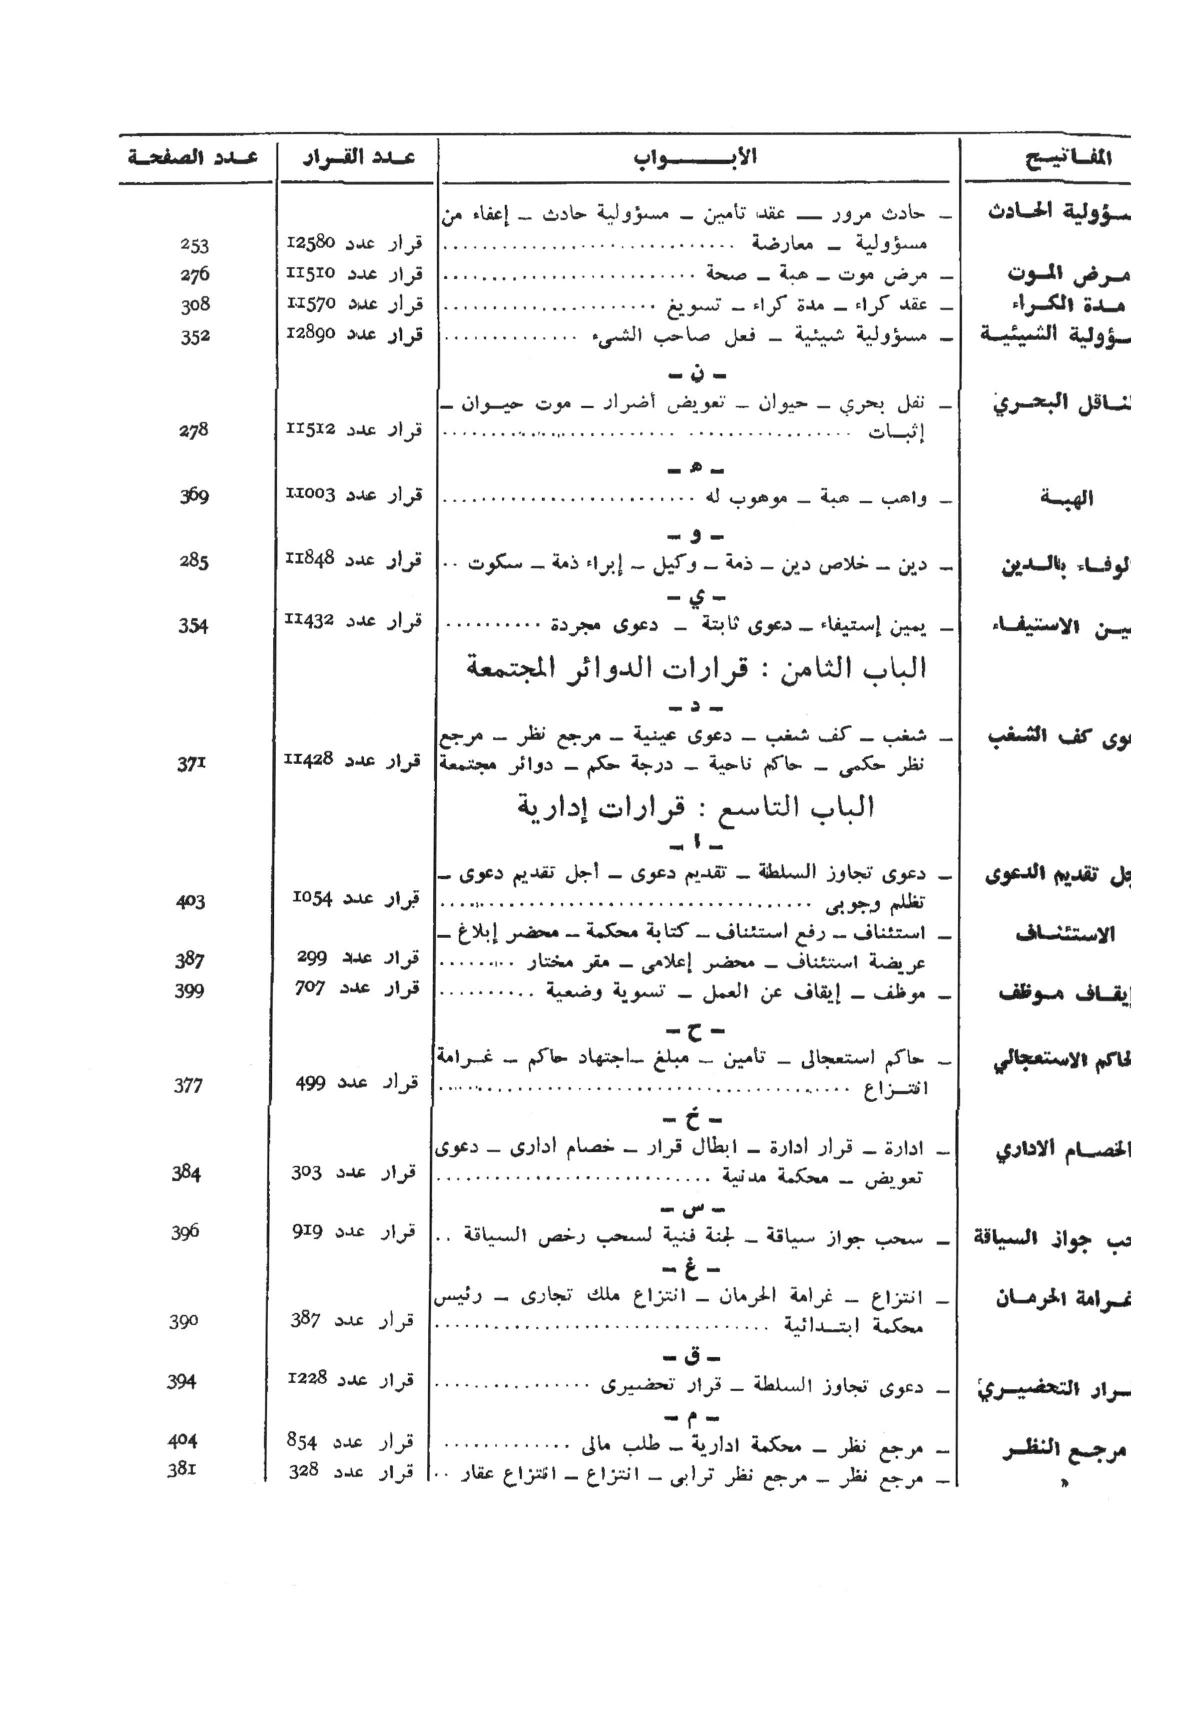 المفاتيح الأبواب عدد القرار عدد الصفحة
سؤولية الحادث – حادث مرور – عقد تأمين – مسؤولية حادث – إعفاء من
مسؤولية – معارضة .............................. قرار عدد 12580 253
مرض الموت – مرض موت – هبة – صحة .......................... قرار عدد 11510 276
مدة الكراء – عقد كراء – مدة كراء – تسويغ ...................... قرار عدد 11570 308
سؤولية الشيئية – مسؤولية شيئية – فعل صاحب الشيء .............. قرار عدد 12890 352
– ن –
لناقل البحري – نقل بحري – حيوان – تعويض أضرار – موت حيوان –
إثبات .......................................... قرار عدد 11512 278
– ه –
الهبة – واهب – هبة – موهوب له .......................... قرار عدد 11003 369
– و –
لوفاء بالدين – دين – خلاص دين – ذمة – وكيل – إبراء ذمة – سكوت .. قرار عدد 11848 285
– ي –
مين الاستيفاء – يمين إستيفاء – دعوى ثابتة – دعوى مجردة .......... قرار عدد 11432 354
الباب الثامن : قرارات الدوائر المجتمعة
– د –
عوى كف الشغب – شغب – كف شغب – دعوى عينية – مرجع نظر – مرجع
نظر حكمي – حاكم ناحية – درجة حكم – دوائر مجتمعة قرار عدد 11428 371
الباب التاسع : قرارات إدارية
– ا –
جل تقديم الدعوى – دعوى تجاوز السلطة – تقديم دعوى – أجل تقديم دعوى –
تظلم وجوبي ...................................... قرار عدد 1054 403
الاستئناف – استئناف – رفع استئناف – كتابة محكمة – محضر إبلاغ –
عريضة استئناف – محضر إعلامي – مقر مختار ........ قرار عدد 299 387
إيقاف موظف – موظف – إيقاف عن العمل – تسوية وضعية .......... قرار عدد 707 399
– ح –
لحاكم الاستعجالي – حاكم استعجالي – تأمين – مبلغ – اجتهاد حاكم – غرامة
انتزاع .......................................... قرار عدد 499 377
– خ –
لخصام الاداري – ادارة – قرار ادارة – ابطال قرار – خصام اداري – دعوى
تعويض – محكمة مدنية ............................ قرار عدد 303 384
– س –
حب جواز السياقة – سحب جواز سياقة – لجنة فنية لسحب رخص السياقة .. قرار عدد 919 396
– غ –
غرامة الحرمان – انتزاع – غرامة الحرمان – انتزاع ملك تجاري – رئيس
محكمة ابتدائية .................................. قرار عدد 387 390
– ق –
قرار التحضيري – دعوى تجاوز السلطة – قرار تحضيري ................ قرار عدد 1228 394
– م –
مرجع النظر – مرجع نظر – محكمة ادارية – طلب مالي ............. قرار عدد 854 404
» – مرجع نظر – مرجع نظر ترابي – انتزاع – انتزاع عقار .. قرار عدد 328 381